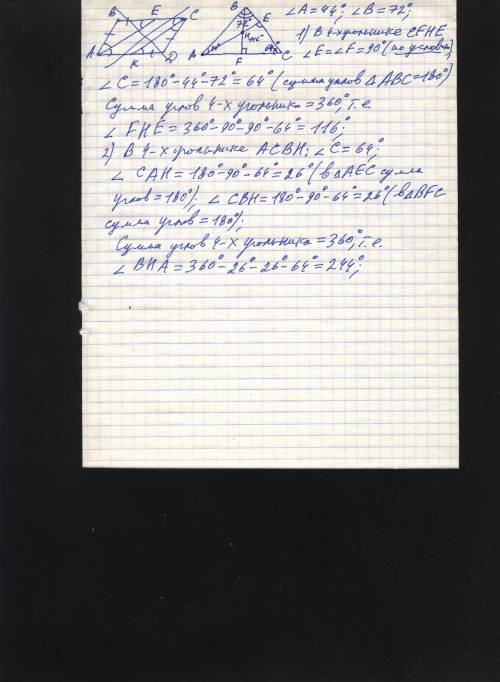 B E C
A K D
B 72° E H 116° 44° A F C
∠A = 44°; ∠B = 72°;
1) В 4-угольнике CFHE
∠E = ∠F = 90° (по условию)
∠C = 180° - 44° - 72° = 64° (сумма углов ΔABC = 180°)
Сумма углов 4-х угольника = 360°, т.е.
∠FHE = 360° - 90° - 90° - 64° = 116°;
2) В 4-х угольнике ACBH; ∠C = 64°;
∠CAH = 180° - 90° - 64° = 26° (в ΔAEC сумма
углов = 180°); ∠CBH = 180° - 90° - 64° = 26° (в ΔBFC
сумма углов = 180°);
Сумма углов 4-х угольника = 360°, т.е.
∠BHA = 360° - 26° - 26° - 64° = 244°;